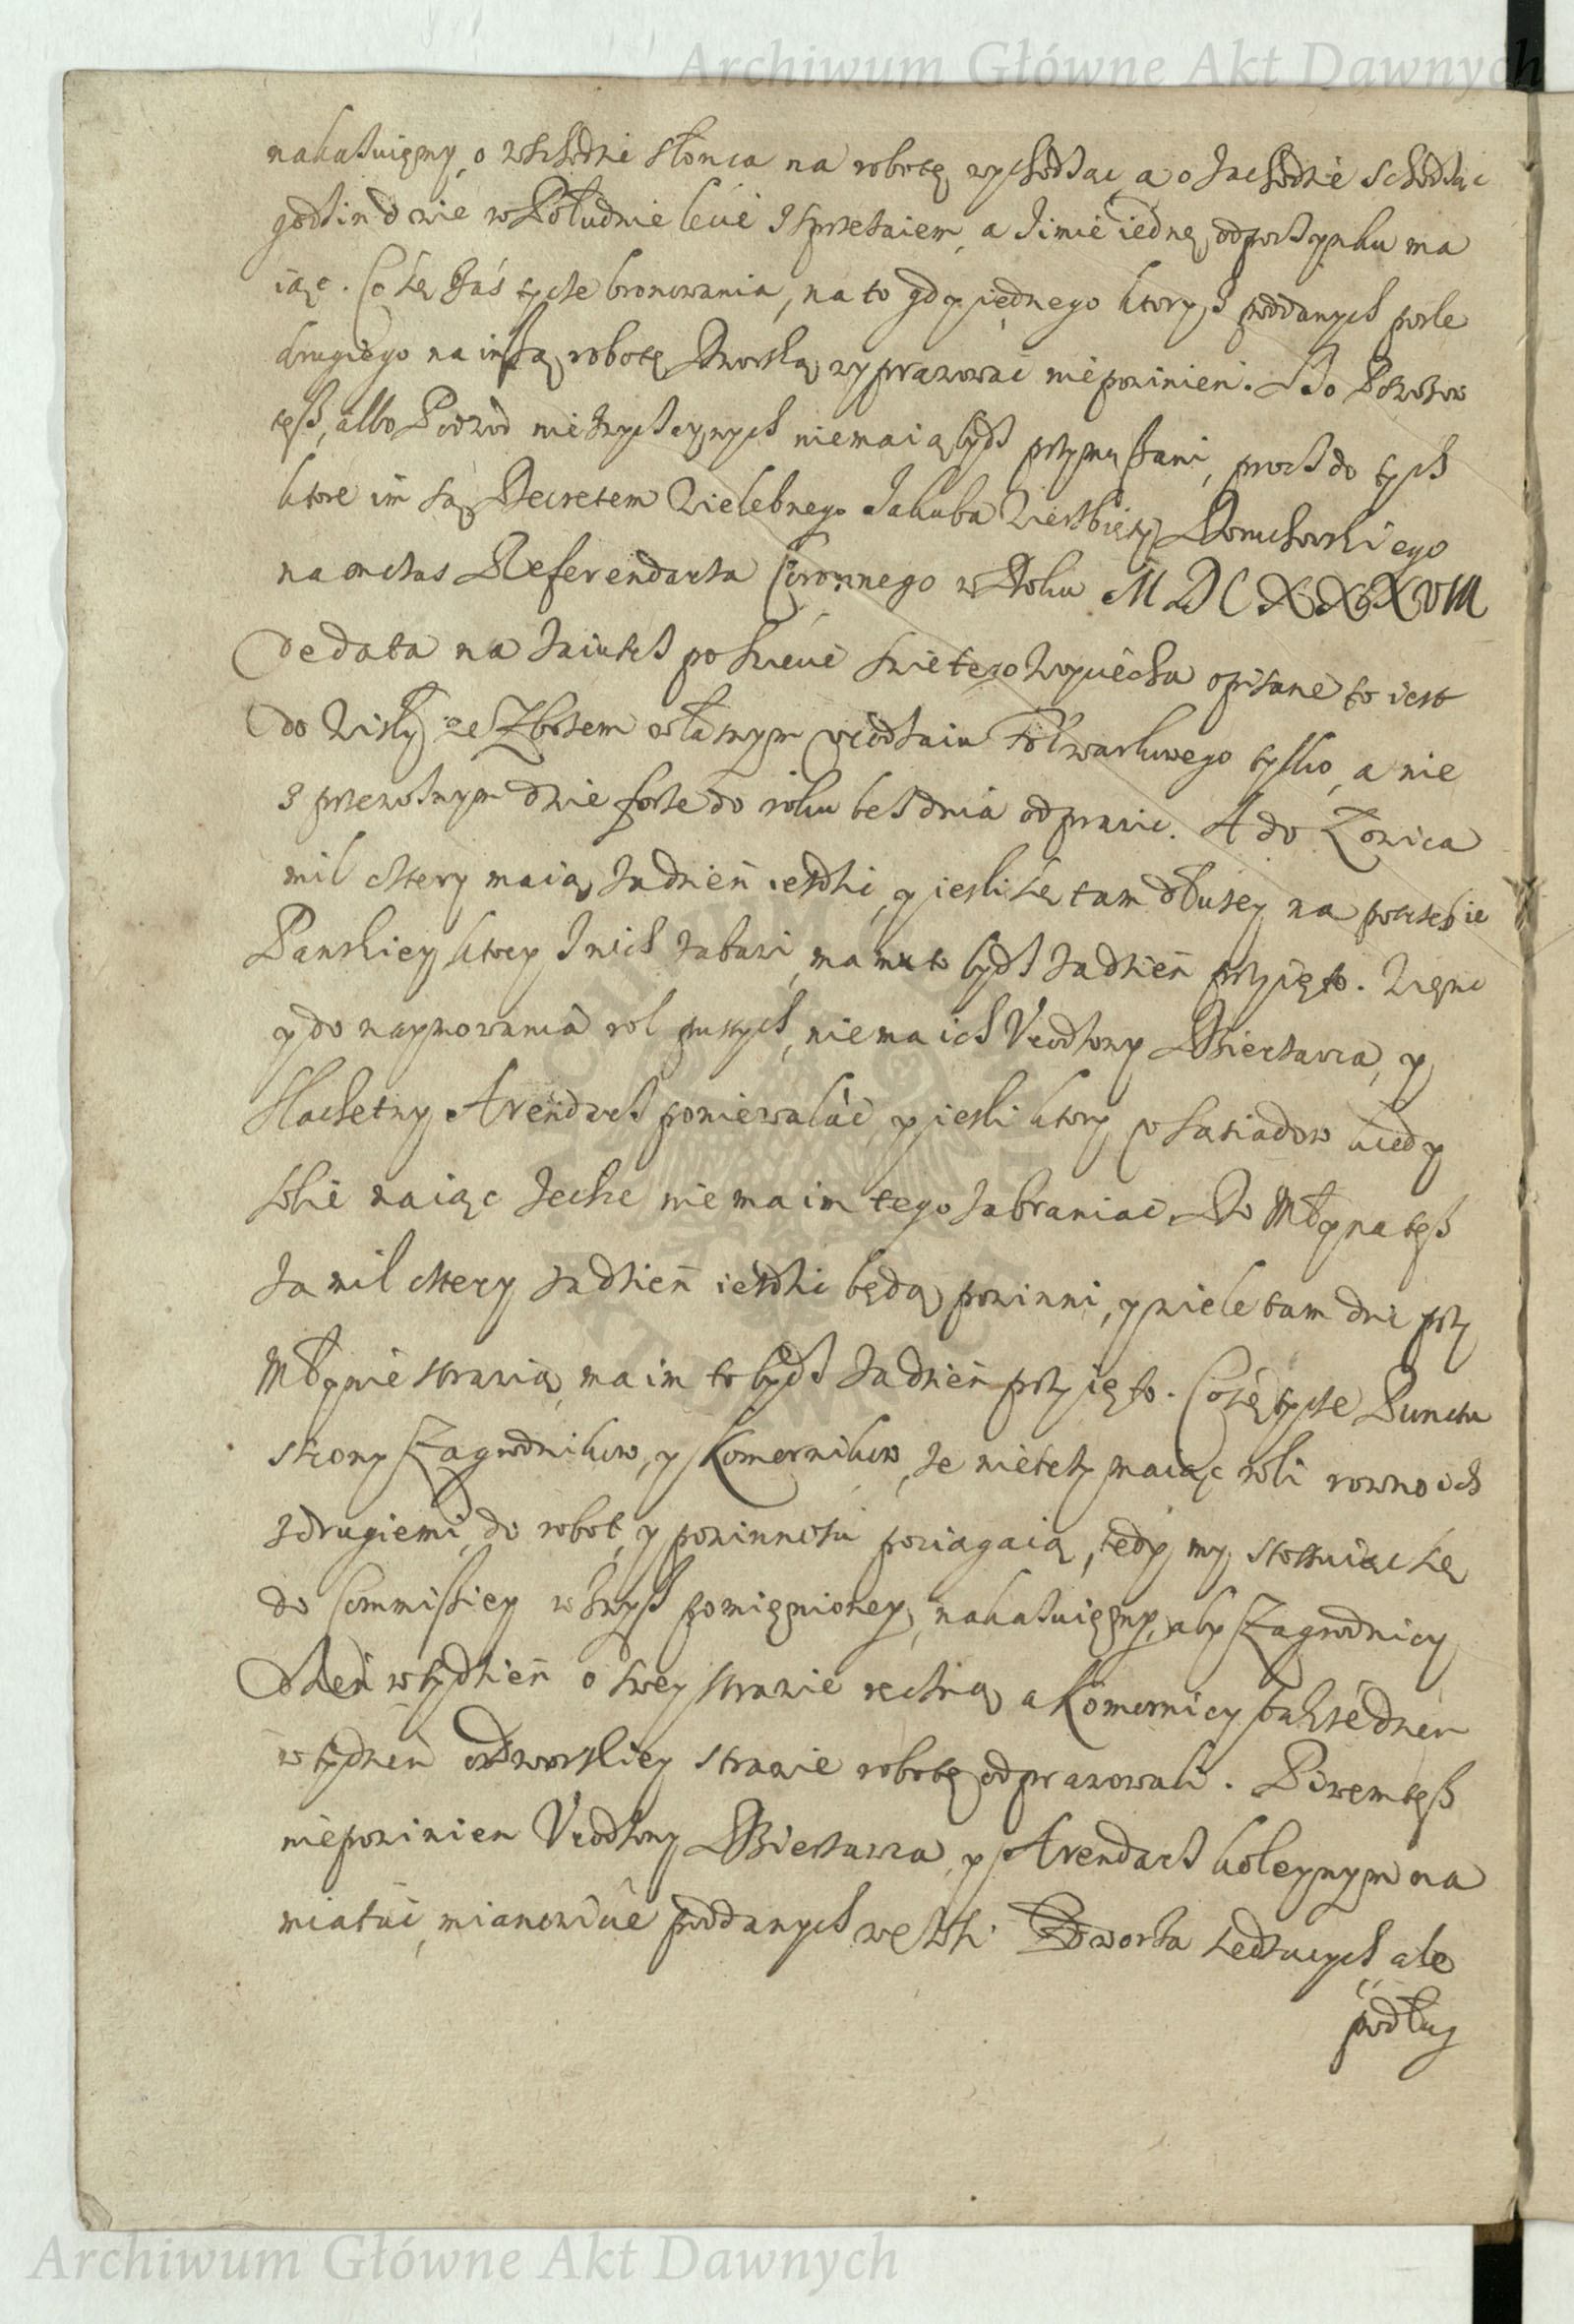 Archiwum Główne Akt Dawnych
nakazuięmy, o wschodzie słonca na robotę wychodząc, a o zachodzie schodząc
godzin dwie w Południe lecie y sprzetaiem, a zimie iednę, odpoczynku ma
iąc. Co się zaś tycze bronowania, na to gdy iednego ktory z poddanych posle
drugiego na inszą robotę Dworską wyprawować niepowinien. Do Powozow
tesz, albo Podwod niezwyczaynych niemaią bydz przymuszani, procz do tych
ktore im są Decretem Wielebnego Jakuba Wierzbięty Doruchowskiego
na onczas Referendarza Coronnego w Roku MDCXXXVIII
de data na zaiutrz po święcie świetego Woyciecha opisane to iest
do Wisły ze Zbozem własnym vrodzaiu Folwarkowego tylko, a nie
z przewoznym dwie forze do roku bez dnia odprawic. A do Łowica
mil cztery maią za dzień iezdzic, y iesli się tam dłuzey na potrzebie
Panskiey ktory z nich zabawi, ma mu to bydz za dzień przyięto. Więnc
y do naymowania rol pustych, niema ich Vrodzony Dzierzawca, y
Slachetny Arendarz poniewalać, y iesli ktory po sasiadow kiedy
sobie naiąc zechce niema im tego zabraniac. Do Młyna tesz
za mil cztery za dzień iezdzic będą powinni, y wiele tam dni przy
Młynie strawią, ma im to bydz za dzień przyięto. Co się tycze Punctu
strony Zagrodnikow, y Komornikow, ze nietesz maiąc roli rowno ich
z drugiemi do robot, y powinnosci pociagaią, tedy my stosuiąc się
do Commissiey wzwysz pomięnioney, nakazuięmy, aby Zagrodnicy
Dzień w tydzień o swey strawie recznią a Komornicy takze dzień
w tydzień o Dworskiey strawie robotę odprawowali. Piwem tesz
niepowinien Vrodzony Dzierzawca, y Arendarz koleynym na
miatać, mianowicie poddanych we Wsi Dworza siedzących ale
podług
Archiwum Główne Akt Dawnych